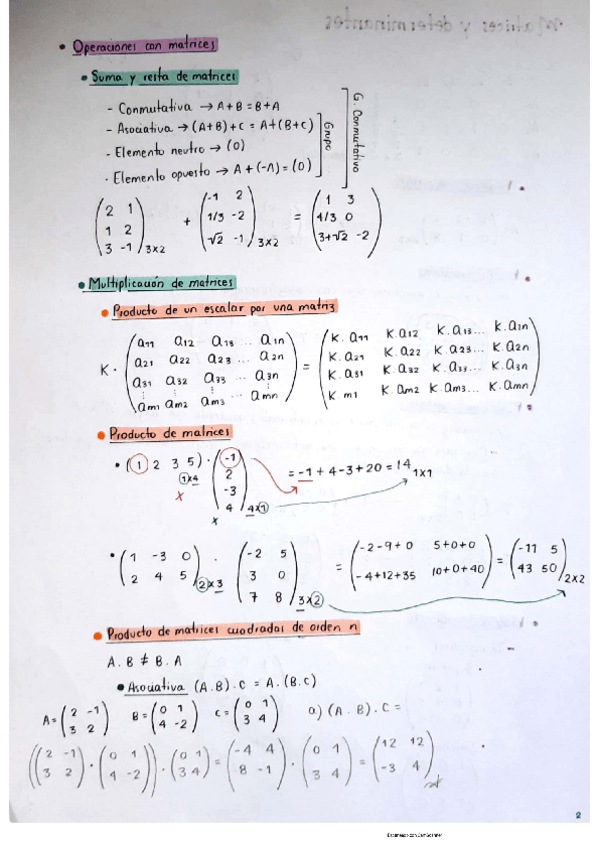 • Operaciones con matrices
• Suma y resta de matrices
- Conmutativa → A+B = B+A
- Asociativa → (A+B)+C = A+(B+C)
- Elemento neutro → (0)
- Elemento opuesto → A+(-A) = (0)
Grupo
G. Conmutativo
(2 1 / 1 2 / 3 -1) 3x2 + (-1 2 / 1/3 -2 / √2 -1) 3x2 = (1 3 / 4/3 0 / 3+√2 -2)
• Multiplicación de matrices
• Producto de un escalar por una matriz
K · (a11 a12 a13 ... a1n / a21 a22 a23 ... a2n / a31 a32 a33 ... a3n / am1 am2 am3 ... amn) = (K.a11 K.a12 K.a13... K.a1n / K.a21 K.a22 K.a23... K.a2n / K.a31 K.a32 K.a33... K.a3n / K.m1 K.am2 K.am3... K.amn)
• Producto de matrices
• (1 2 3 5) 1x4 · (-1 / 2 / -3 / 4) 4x1 = -1+4-3+20 = 14 1x1
x
x
• (1 -3 0 / 2 4 5) 2x3 · (-2 5 / 3 0 / 7 8) 3x2 = (-2-9+0 5+0+0 / -4+12+35 10+0+40) = (-11 5 / 43 50) 2x2
• Producto de matrices cuadradas de orden n
A.B ≠ B.A
• Asociativa (A.B).C = A.(B.C)
A = (2 -1 / 3 2) B = (0 1 / 4 -2) C = (0 1 / 3 4) a) (A.B).C =
((2 -1 / 3 2) · (0 1 / 4 -2)) · (0 1 / 3 4) = (-4 4 / 8 -1) · (0 1 / 3 4) = (12 12 / -3 4)
2